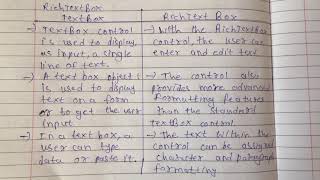 RichTextBox
TextBox
RichText Box
→) TextBox control
is used to display,
as input, a single
line of text.
→) With the RichTextBox
control, the user can
enter and edit text
→) A text box object
is used to display
text on a form
or to get the user
input
→) The control also
provides more advanced
formatting features
than the standard
TextBox control.
→) In a text box, a
user can type
data or paste it.
→) The text within the
control can be assigned
character and paragraph
formatting